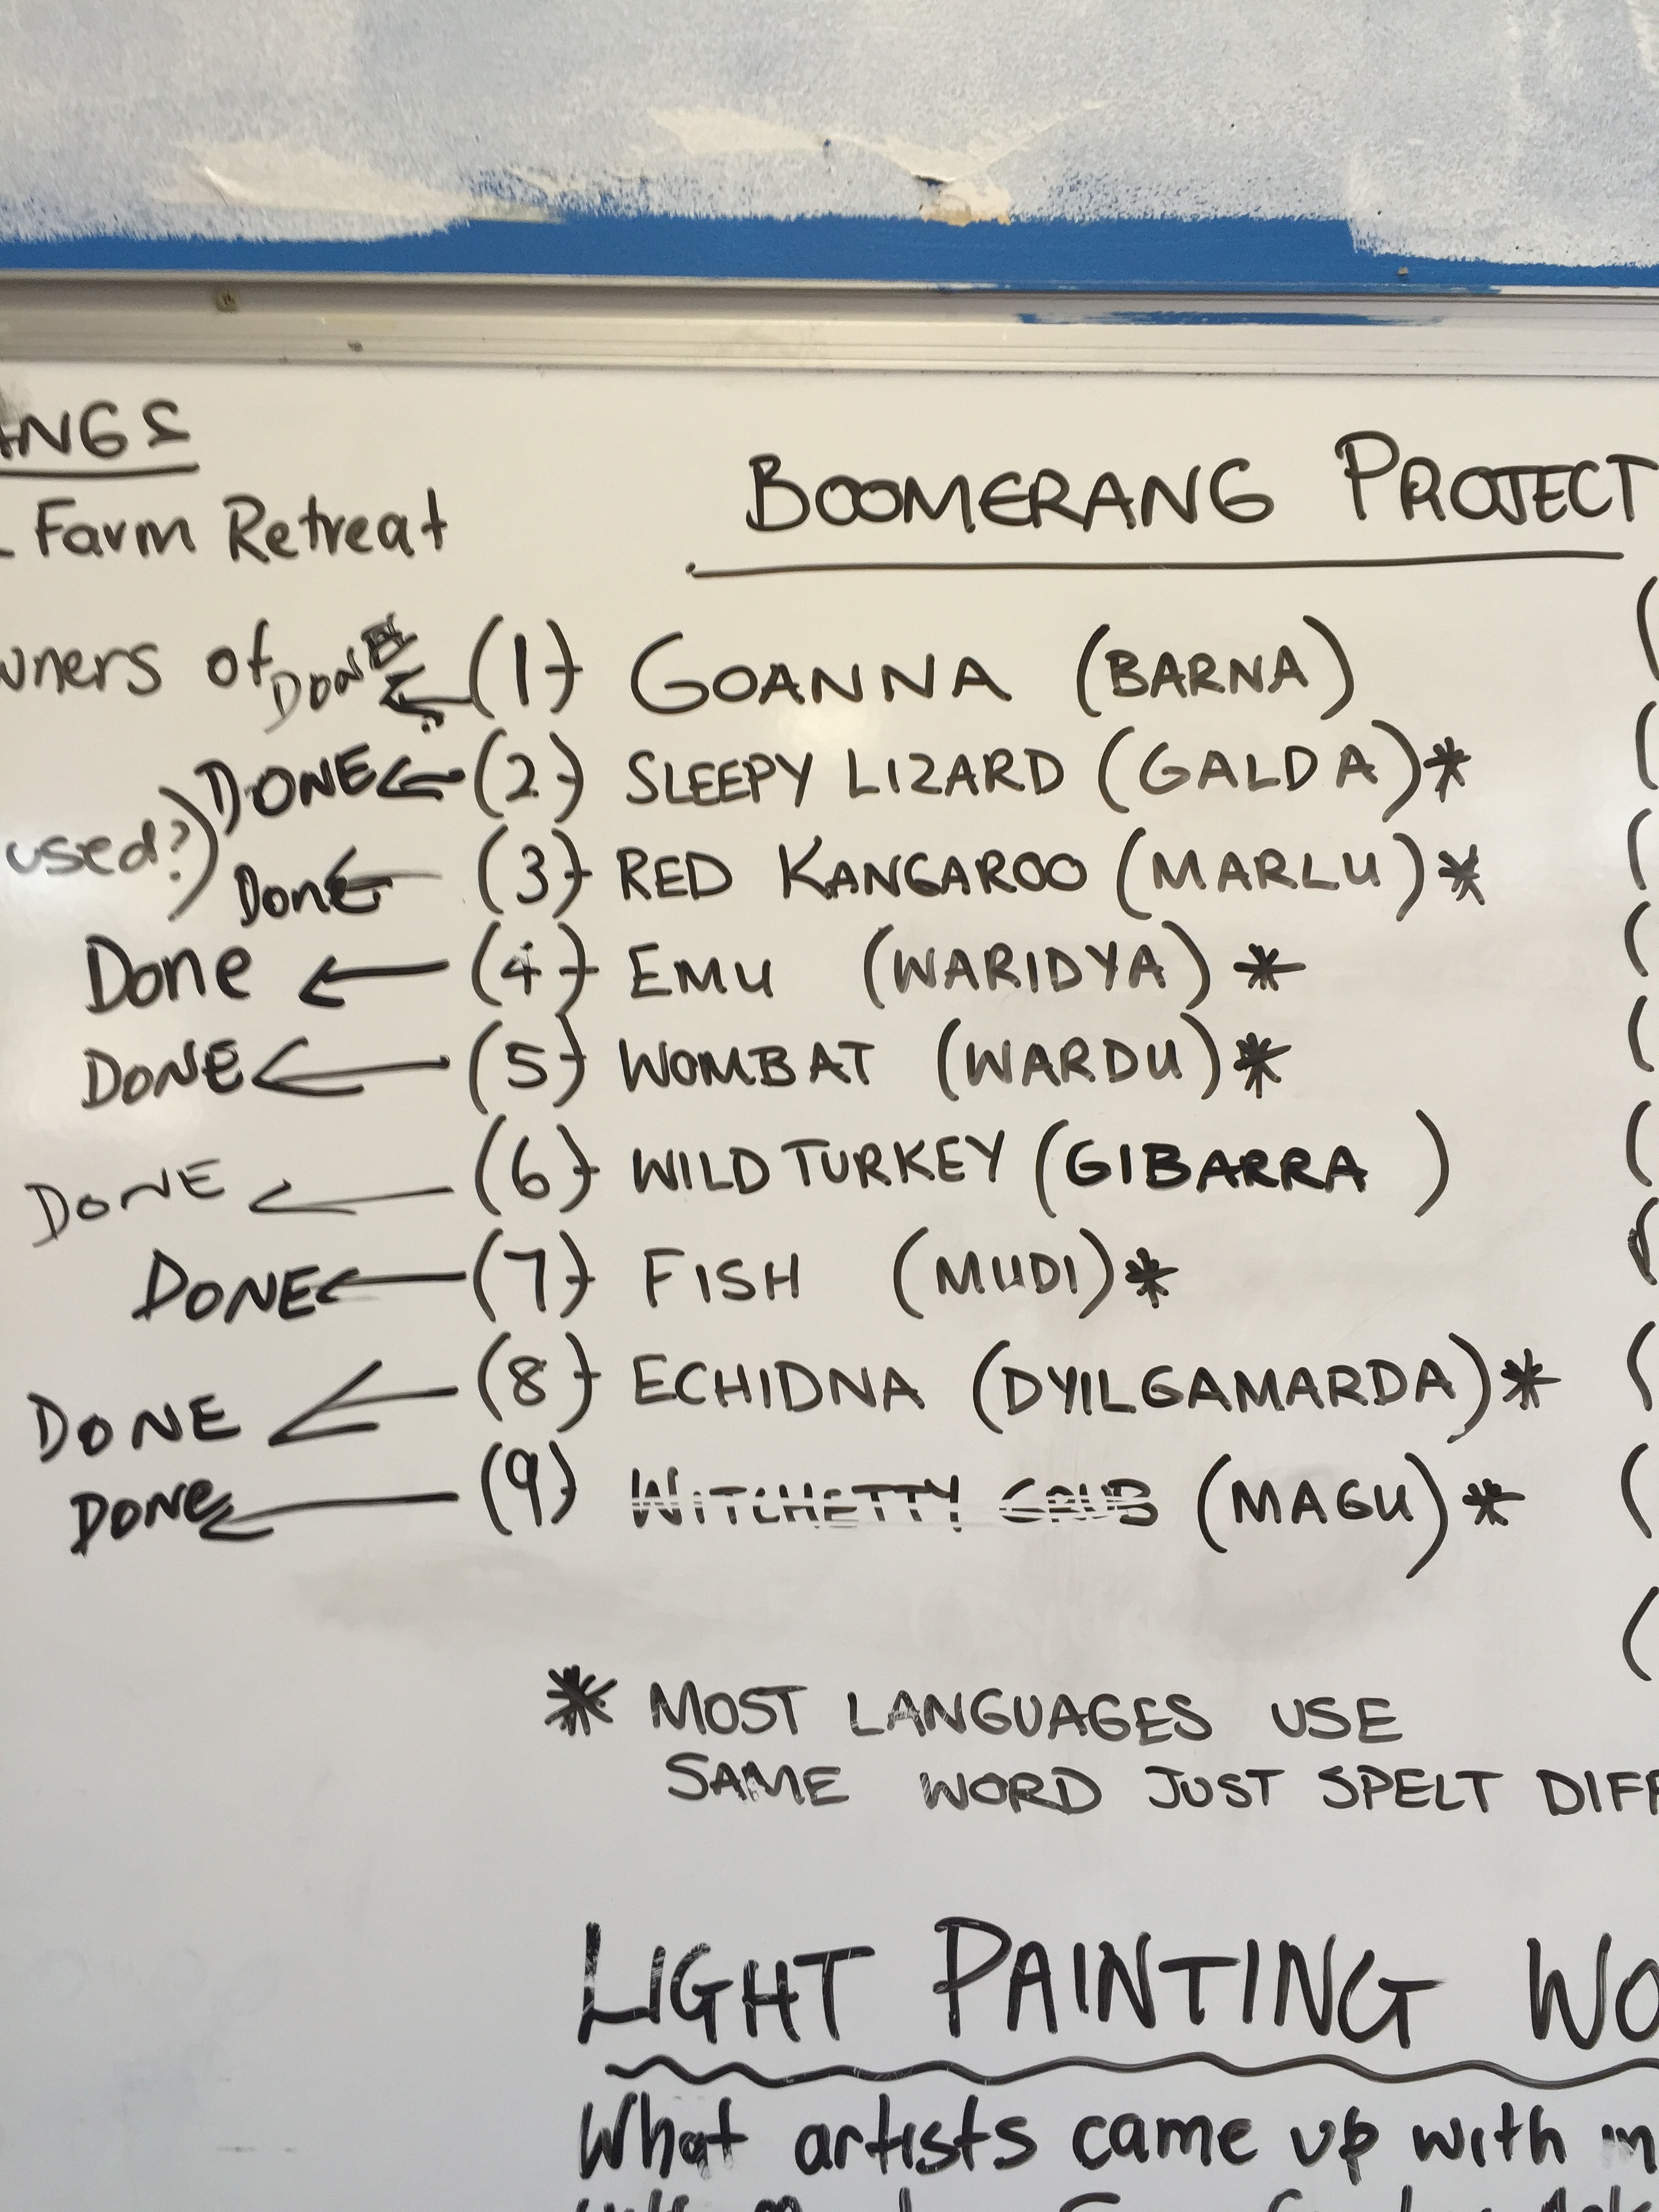 Farm Retreat
BOOMERANG PROJECT
of
DONE ← (1) GOANNA (BARNA)
DONE ← (2) SLEEPY LIZARD (GALDA)*
used?)
Done ← (3) RED KANGAROO (MARLU)*
Done ← (4) EMU (WARIDYA)*
DONE ← (5) WOMBAT (WARDU)*
DONE ← (6) WILD TURKEY (GIBARRA)
DONE ← (7) FISH (MUDI)*
DONE ← (8) ECHIDNA (DYILGAMARDA)*
DONE ← (9) WITCHETTY GRUB (MAGU)*
* MOST LANGUAGES USE
SAME WORD JUST SPELT
LIGHT PAINTING
What artists came up with